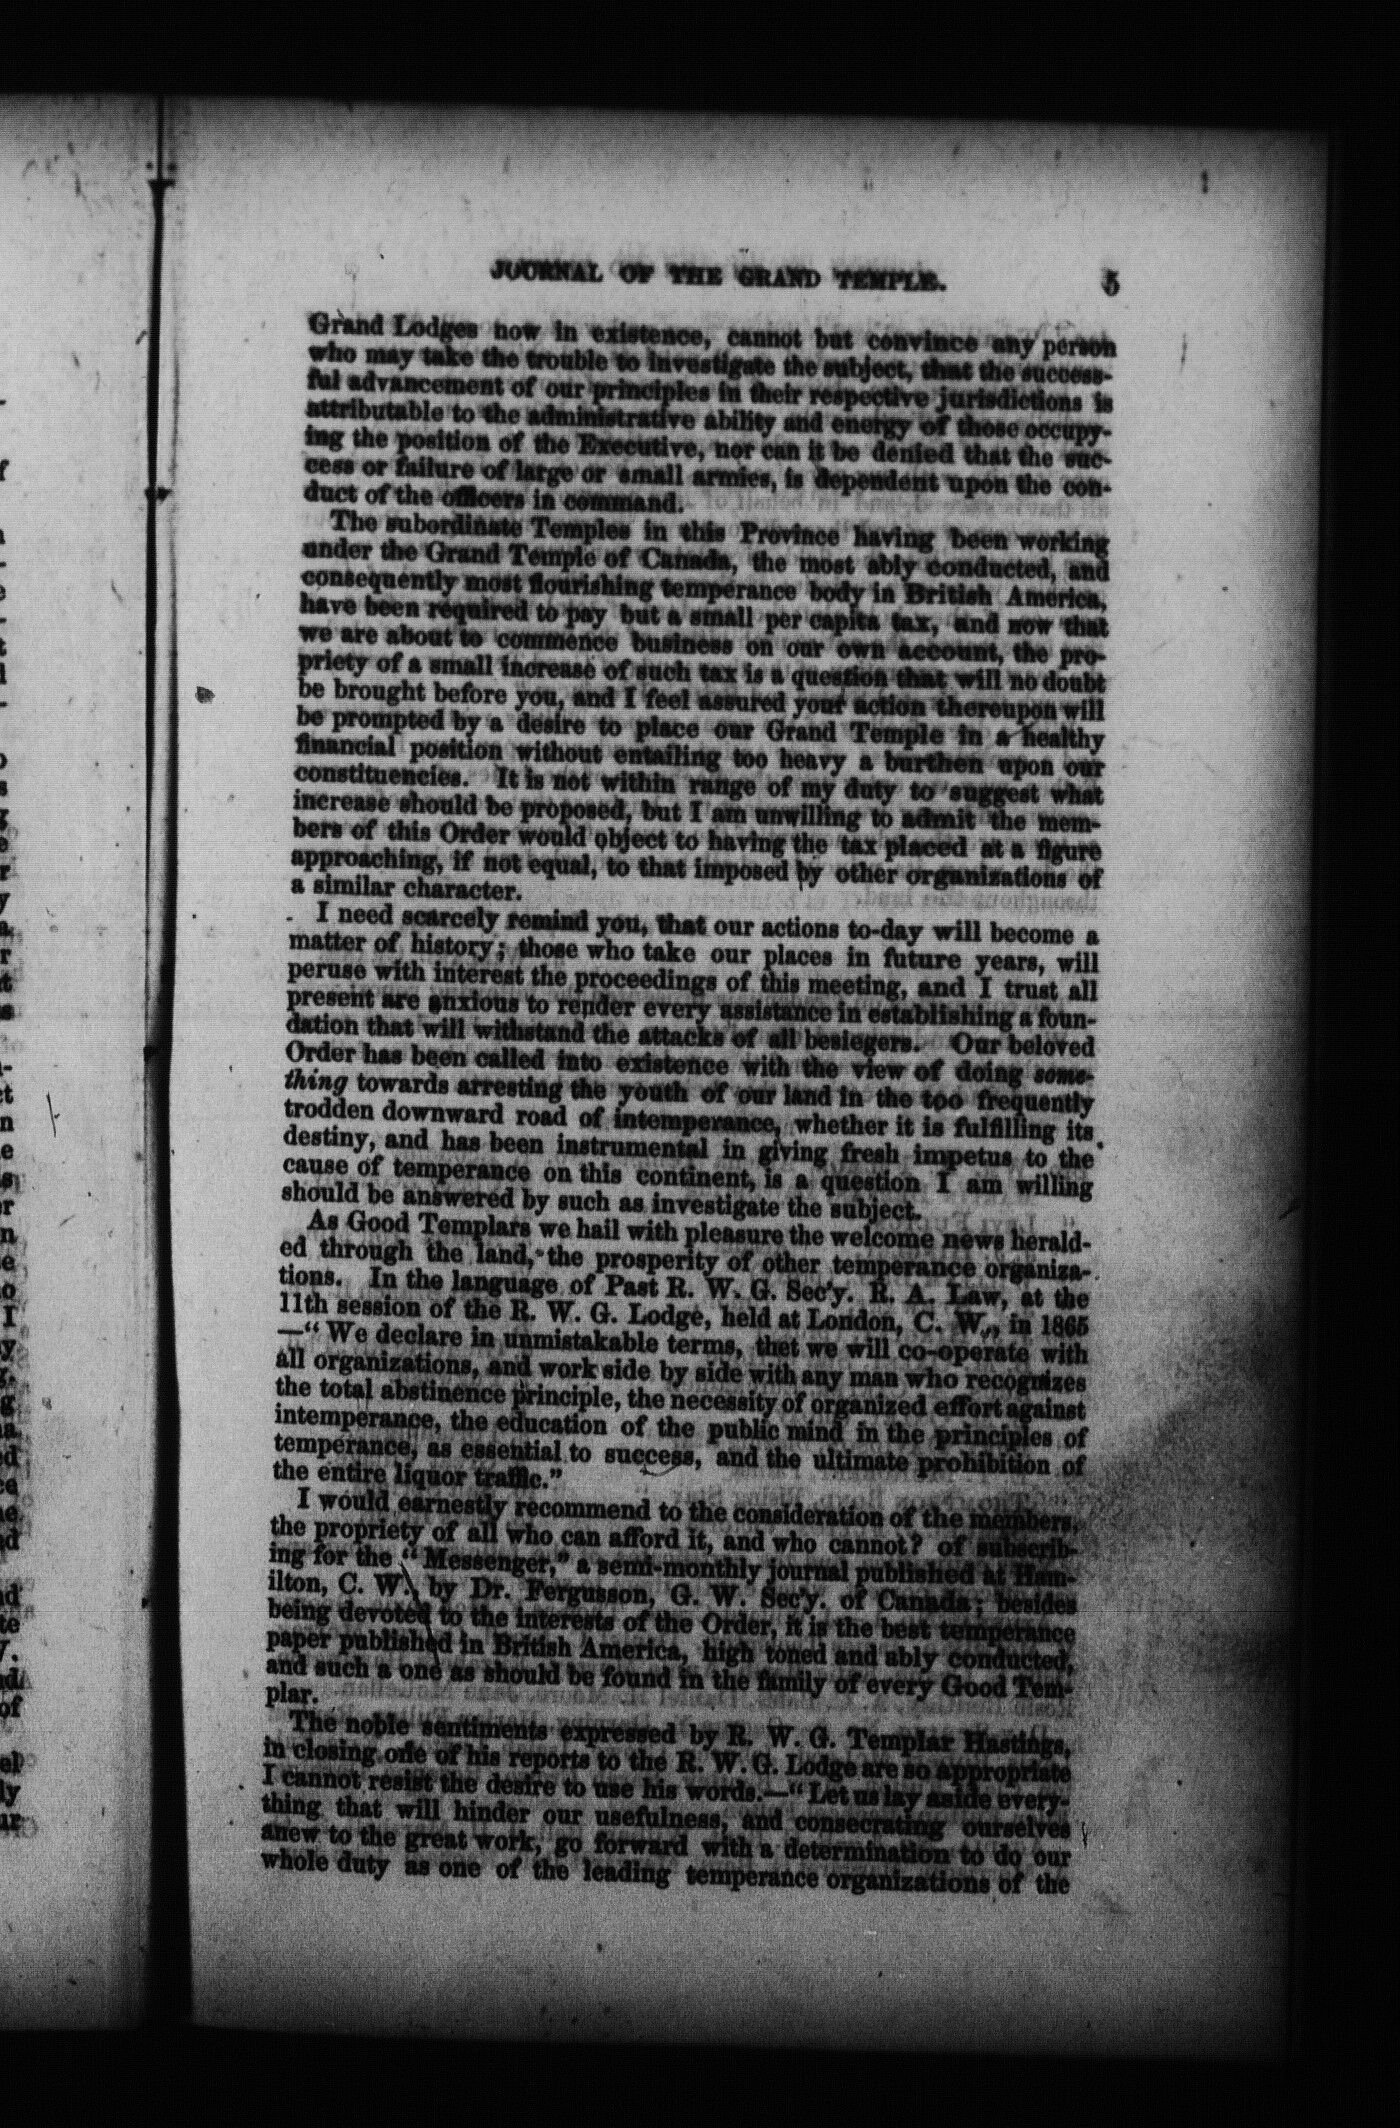 JOURNAL OF THE GRAND TEMPLE. 5
Grand Lodges now in existence, cannot but convince any person
who may take the trouble to investigate the subject, that the success-
ful advancement of our principles in their respective jurisdictions is
attributable to the administrative ability and energy of those occupy-
ing the position of the Executive, nor can it be denied that the suc-
cess or failure of large or small armies, is dependent upon the con-
duct of the officers in command.
The subordinate Temples in this Province having been working
under the Grand Temple of Canada, the most ably conducted, and
consequently most flourishing temperance body in British America,
have been required to pay but a small per capita tax, and now that
we are about to commence business on our own account, the pro-
priety of a small increase of such tax is a question that will no doubt
be brought before you, and I feel assured your action thereupon will
be prompted by a desire to place our Grand Temple in a healthy
financial position without entailing too heavy a burthen upon our
constituencies. It is not within range of my duty to suggest what
increase should be proposed, but I am unwilling to admit the mem-
bers of this Order would object to having the tax placed at a figure
approaching, if not equal, to that imposed by other organizations of
a similar character.
I need scarcely remind you, that our actions to-day will become a
matter of history; those who take our places in future years, will
peruse with interest the proceedings of this meeting, and I trust all
present are anxious to render every assistance in establishing a foun-
dation that will withstand the attacks of all besiegers. Our beloved
Order has been called into existence with the view of doing some-
thing towards arresting the youth of our land in the too frequently
trodden downward road of intemperance, whether it is fulfilling its
destiny, and has been instrumental in giving fresh impetus to the
cause of temperance on this continent, is a question I am willing
should be answered by such as investigate the subject.
As Good Templars we hail with pleasure the welcome news herald-
ed through the land, the prosperity of other temperance organiza-
tions. In the language of Past R. W. G. Sec'y. R. A. Law, at the
11th session of the R. W. G. Lodge, held at London, C. W., in 1865
—"We declare in unmistakable terms, thet we will co-operate with
all organizations, and work side by side with any man who recognizes
the total abstinence principle, the necessity of organized effort against
intemperance, the education of the public mind in the principles of
temperance, as essential to success, and the ultimate prohibition of
the entire liquor traffic."
I would earnestly recommend to the consideration of the members,
the propriety of all who can afford it, and who cannot? of subscrib-
ing for the "Messenger," a semi-monthly journal published at Ham-
ilton, C. W., by Dr. Fergusson, G. W. Sec'y. of Canada; besides
being devoted to the interests of the Order, it is the best temperance
paper published in British America, high toned and ably conducted,
and such a one as should be found in the family of every Good Tem-
plar.
The noble sentiments expressed by R. W. G. Templar Hastings,
in closing one of his reports to the R. W. G. Lodge are so appropriate
I cannot resist the desire to use his words.—"Let us lay aside every-
thing that will hinder our usefulness, and consecrating ourselves
anew to the great work, go forward with a determination to do our
whole duty as one of the leading temperance organizations of the